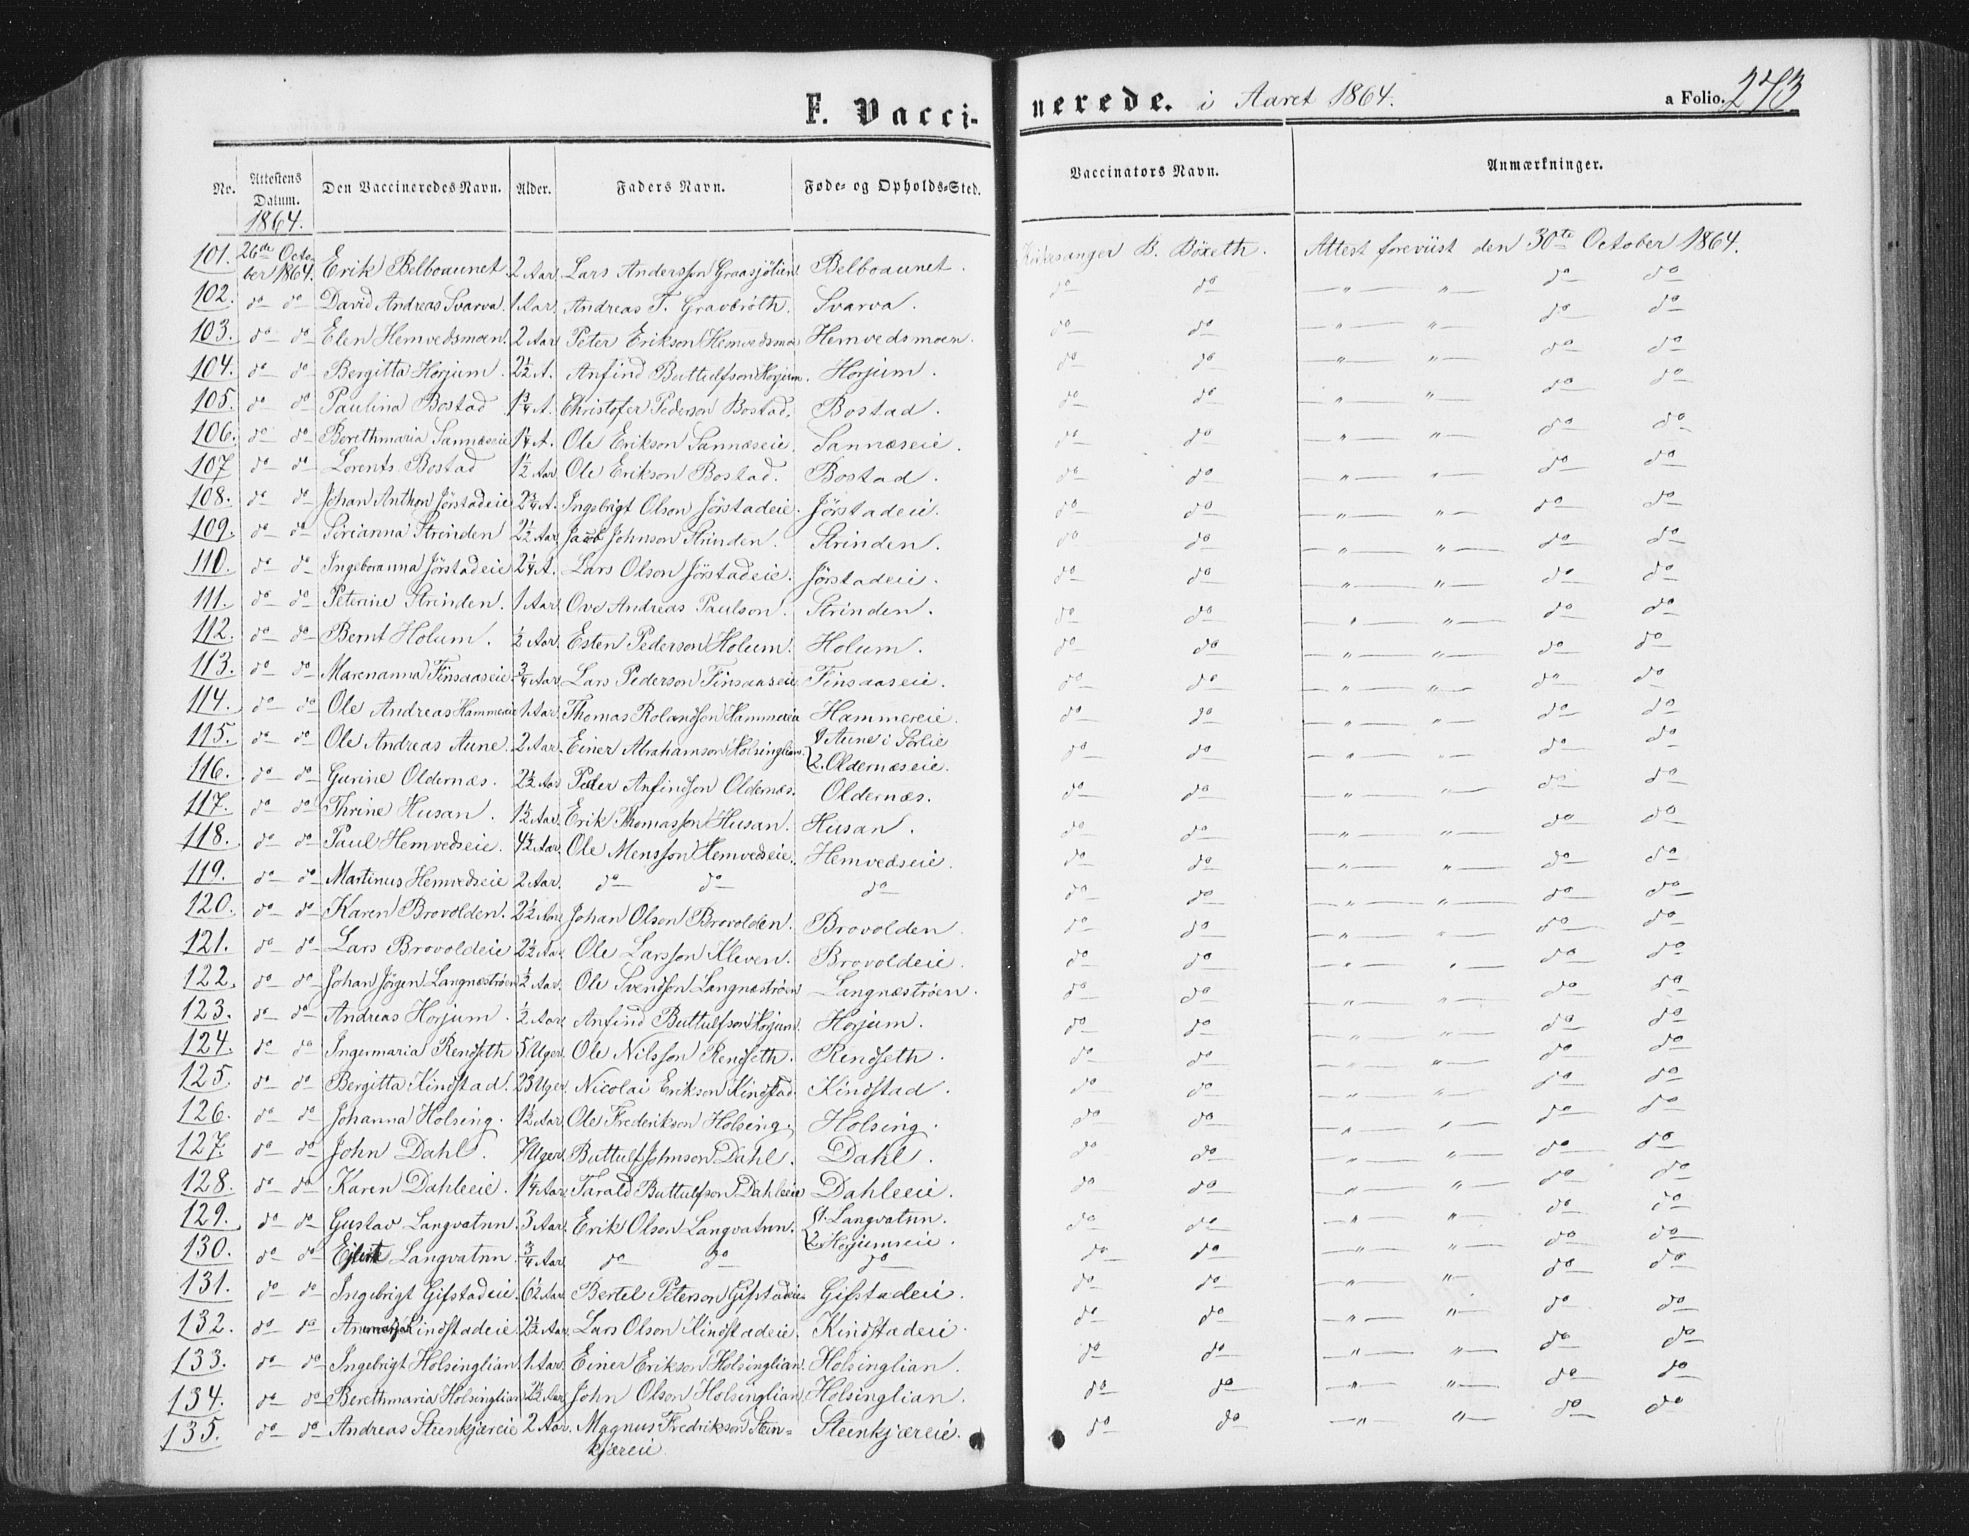 F. Vaccinerede. i Aaret 1864. a Folio. 273
Nr. Attestens Datum. 1864. Den Vaccineredes Navn. Alder. Faders Navn. Føde- og Opholds-Sted. Vaccinators Navn. Anmærkninger.
101. 26de October 1864. Erik Belboaunet 2 Aar Lars Anderssen Belboaunet. Kirkesanger B. Böxeth. Attest foreviist den 30te October 1864.
102. do do David Andreas Svarva 1 Aar. Andreas T. Gravbröth. Svarva. do do — „ — „ do do
103. do do Elen Hemvedsmoen. 2 Aar Peter Erikson Hemvedsmo Hemvedsmoen. do do — „ — „ do do
104. do do Bergitta Horjum. 2½ A. Anfind Buttulfson Horjum. Horjum. do do — „ — „ do do
105. do do Paulina Bostad 1¾ A. Christofer Pederson Bostad. Bostad. do do — „ — „ do do
106. do do Berethmaria Sannæseie 1¼ A. Ole Erikson Sannæseie. Sannæseie. do do — „ — „ do do
107 do do Lorents Bostad 1½ Aar Ole Erikson Bostad. Bostad. do do — „ — „ do do
108. do do Johan Anthon Jörstadeie 2¾ A. Ingebrigt Olson Jörstadeie. Jörstadeie. do do — „ — „ do do
109. do do Sörianna Strinden 2½ Aar. Jacob Johnson Strinden. Strinden. do do — „ — „ do do
110. do do Ingeboranna Jörstadeie 2¼ A. Lars Olson Jörstadeie. Jörstadeie. do do — „ — „ do do
111. do do Peterine Strinden. 1 Aar. Ove Andreas Paulson. Strinden. do do — „ — „ do do
112. do do Bernt Holum. ½ Aar. Esten Pederson Holum. Holum. do do — „ — „ do do
113. do do Marenanna Finsaaseie ¾ Aar. Lars Pederson Finsaaseie Finsaaseie. do do — „ — „ do do
114. do do Ole Andreas Hammereie 1 Aar. Thomas Rolandson Hammereie Hammereie. do do — „ — „ do do
115. do do Ole Andreas Aune. 2 Aar. Einer Abrahamson Holsinglian. 1 Aune i Sörlie 2. Oldernæseie. do do — „ — „ do do
116. do do Gurine Oldernæs. 2½ Aar Peder Anfindson Oldernæs. Oldernæs. do do — „ — „ do do
117. do do Thrine Husan. 1½ Aar. Erik Thomasson Husan. Husan. do do — „ — „ do do
118. do do Paul Hemvedseie. 4½ Aar. Ole Mensson Hemvedseie. Hemvedseie. do do — „ — „ do do
119. do do Martinus Hemvedseie 2 Aar. do do do do do — „ — „ do do
120. do do Karen Brovolden. 2½ Aar Johan Olsen Brovolden. Brovolden. do do — „ — „ do do
121. do do Lars Brovoldeie 2½ Aar. Ole Larsson Kleven. Brovoldeie. do do — „ — „ do do
122. do do Johan Jörgen Langnæströen ½ Aar. Ole Svendson Langnæströen Langnæströen. do do — „ — „ do do
123. do do Andreas Horjum. ½ Aar Anfind Buttulfson Horjum. Horjum. do do — „ — „ do do
124. do do Ingermaria Rendseth 5 Uger. Ole Nilsson Rendseth. Rendseth. do do — „ — „ do do
125. do do Bergitta Kindstad. 23 Uger. Nicolai Erikson Kindstad. Kindstad. do do — „ — „ do do
126. do do Johanna Holsing. 1½ Aar. Ole Frederikson Holsing. Holsing. do do — „ — „ do do
127. do do John Dahl. 7 Uger. Buttulf Johnson Dahl. Dahl. do do — „ — „ do do
128. do do Karen Dahleeie. 1¼ Aar. Tarald Buttulfson Dahleeie Dahleeie. do do — „ — „ do do
129. do do Gustav Langvatnn. 3 Aar. Erik Olson Langvatnn. 1. Langvatnn. 2. Horjumseie. do do — „ — „ do do
130. do do Langvatnn. ¾ Aar. do do do do do — „ — „ do do
131. do do Ingebrigt Gifstadeie. 6½ Aar Bertel Peterson Gifstadeie Gifstadeie. do do — „ — „ do do
132. do do Kindstadeie. 2½ Aar. Lars Olson Kindstadeie. Kindstadeie. do do — „ — „ do do
133. do do Ingebrigt Holsinglian 1 Aar. Einer Erikson Holsinglian. Holsinglian. do do — „ — „ do do
134. do do Berethmaria Holsinglian 2½ Aar John Olson Holsinglian Holsinglian. do do — „ — „ do do
135. do do Andreas Steenkjæreie 2 Aar. Magnus Fredrikson Steen=kjæreie. Steenkjæreie. do do — „ — „ do do